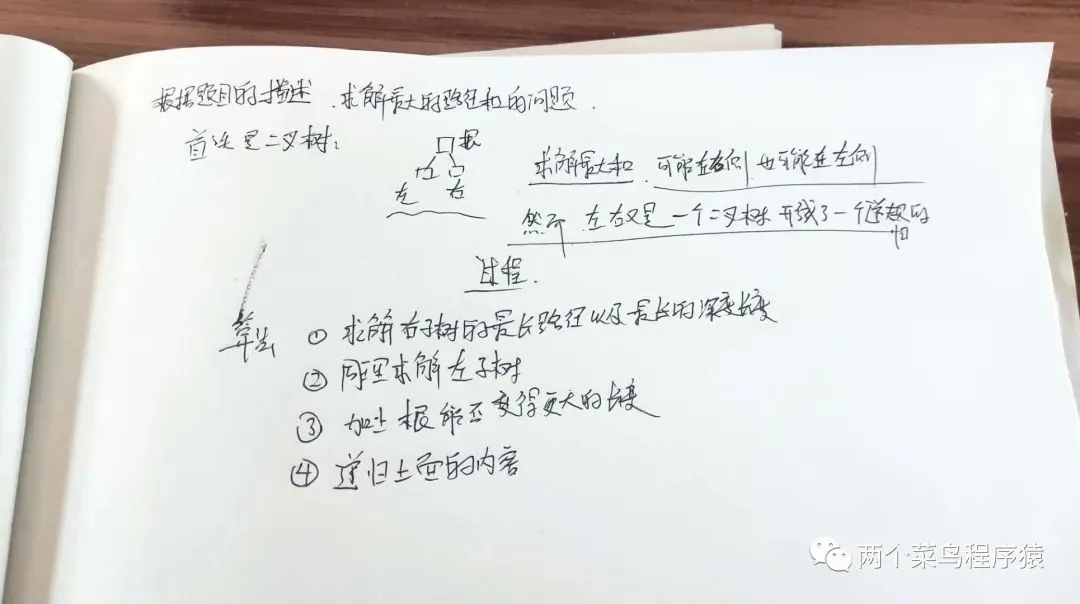 根据题目的描述,求解最大的路径和的问题.
首先是二叉树:
根
左 右
求解最大和,可能在右侧,也可能在左侧
然而 左右又是一个二叉树 形成了一个递归的
过程.
算法 ① 求解右子树的最长路径以及最长的深度长度
② 同理求解左子树
③ 加上根能否变得更大的长度
④ 递归上面的内容
两个菜鸟程序猿